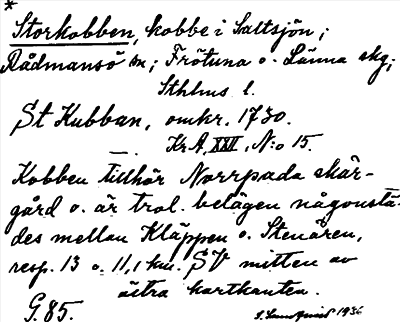 *
Storkobben, kobbe i Saltsjön;
Rådmansö sn; Frötuna o. Länna skg;
Sthlms l.
St Kubban, omkr. 1730.
KrA, XXVI, N:o 15.
Kobben tillhör Norrpada skär-
gård o. är trol. belägen någonstä-
des mellan Kläppen o. Stenören,
resp. 13 o. 11,1 km. SV mitten av
östra kartkanten.
G. 85.
1936